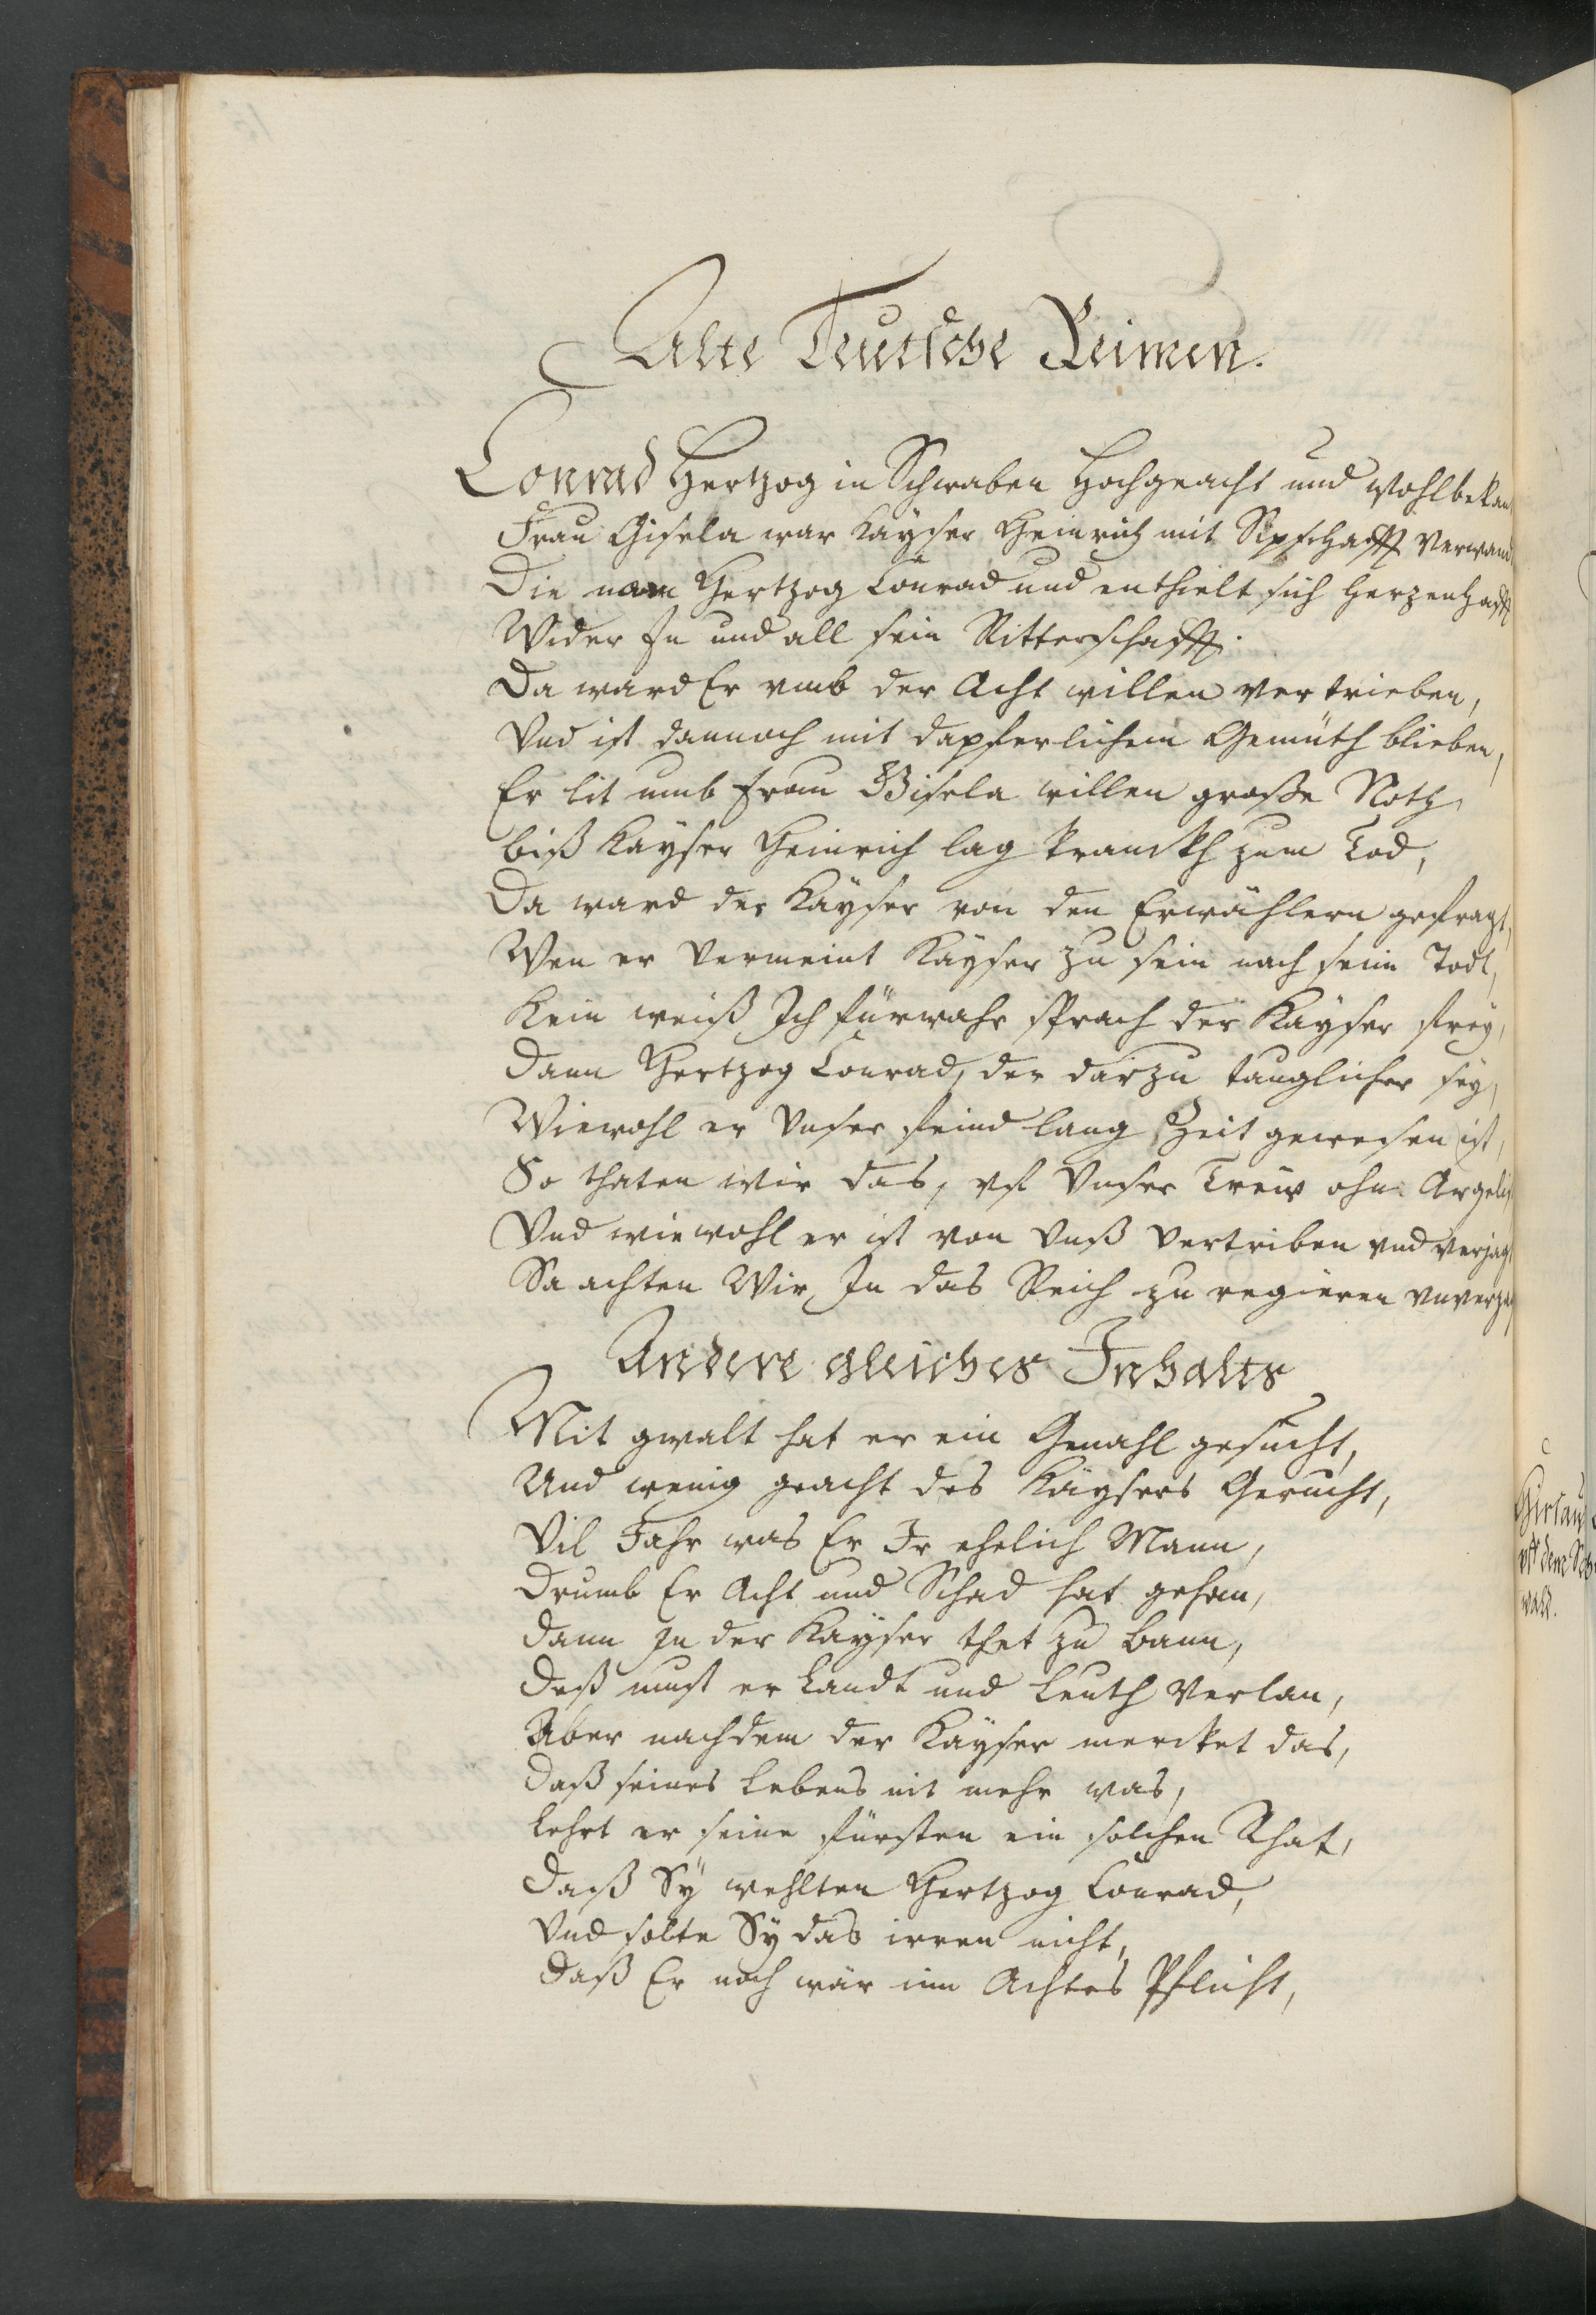 Alte Teutsche Reimen.
Conrad Hertzog in Schwaben Hochgeacht und wohlbekan
Frau Gisela war Kayser Heinrich mit Sipschafft verwand
Die nam Hertzog Conrad und enthielt sich Herzenhafft
Wider In und all sein Ritterschafft.
Da ward Er umb der Acht willen vertrieben,
Und ist dannoch mit dapferlichem Gemüth blieben,
Er lit umb Frau Gisela willen große Noth,
biß Kayser Heinrich lag kranckh zum Tod,
Da ward der Kayser von den Erwählern gefragt,
Wen er vermeint Kayser zu sein nach seim Todt,
Kein weiß Ich fürwahr sprach der Kayser frey,
Dann Hertzog Conrad, der darzu tauglicher sey,
Wiewohl er Unser feind lang Zeit gewesen ist,
So thaten wir das, uf Unser Treiw ohn Argelist
Und wiewohl er ist von Unß vertriben und verjagt
So achten Wir, In das Reich zu regieren unverzagt
Andere gleiches Inhalts
Mit gwalt hat er ein Gmahl gesucht,
Und wenig geacht des Kaysers Gerucht,
Vil Jahr was Er Ir ehelich Mann,
Drumb Er Acht und Schad hat gehan,
Dann In der Kayser thet zu Bann,
Deß must er Landt und Leuth verlan,
Aber nachdem der Kayser mercket das,
Daß seines Lebens nit mehr was,
Lehrt er seine fürsten ein solchen Rhat,
Daß Sy wehlten Hertzog Conrad,
Und solte Sy das irren nicht,
Daß Er noch wär inn Achtes Pflicht,
Hirsau
uff dem Sch
wald.